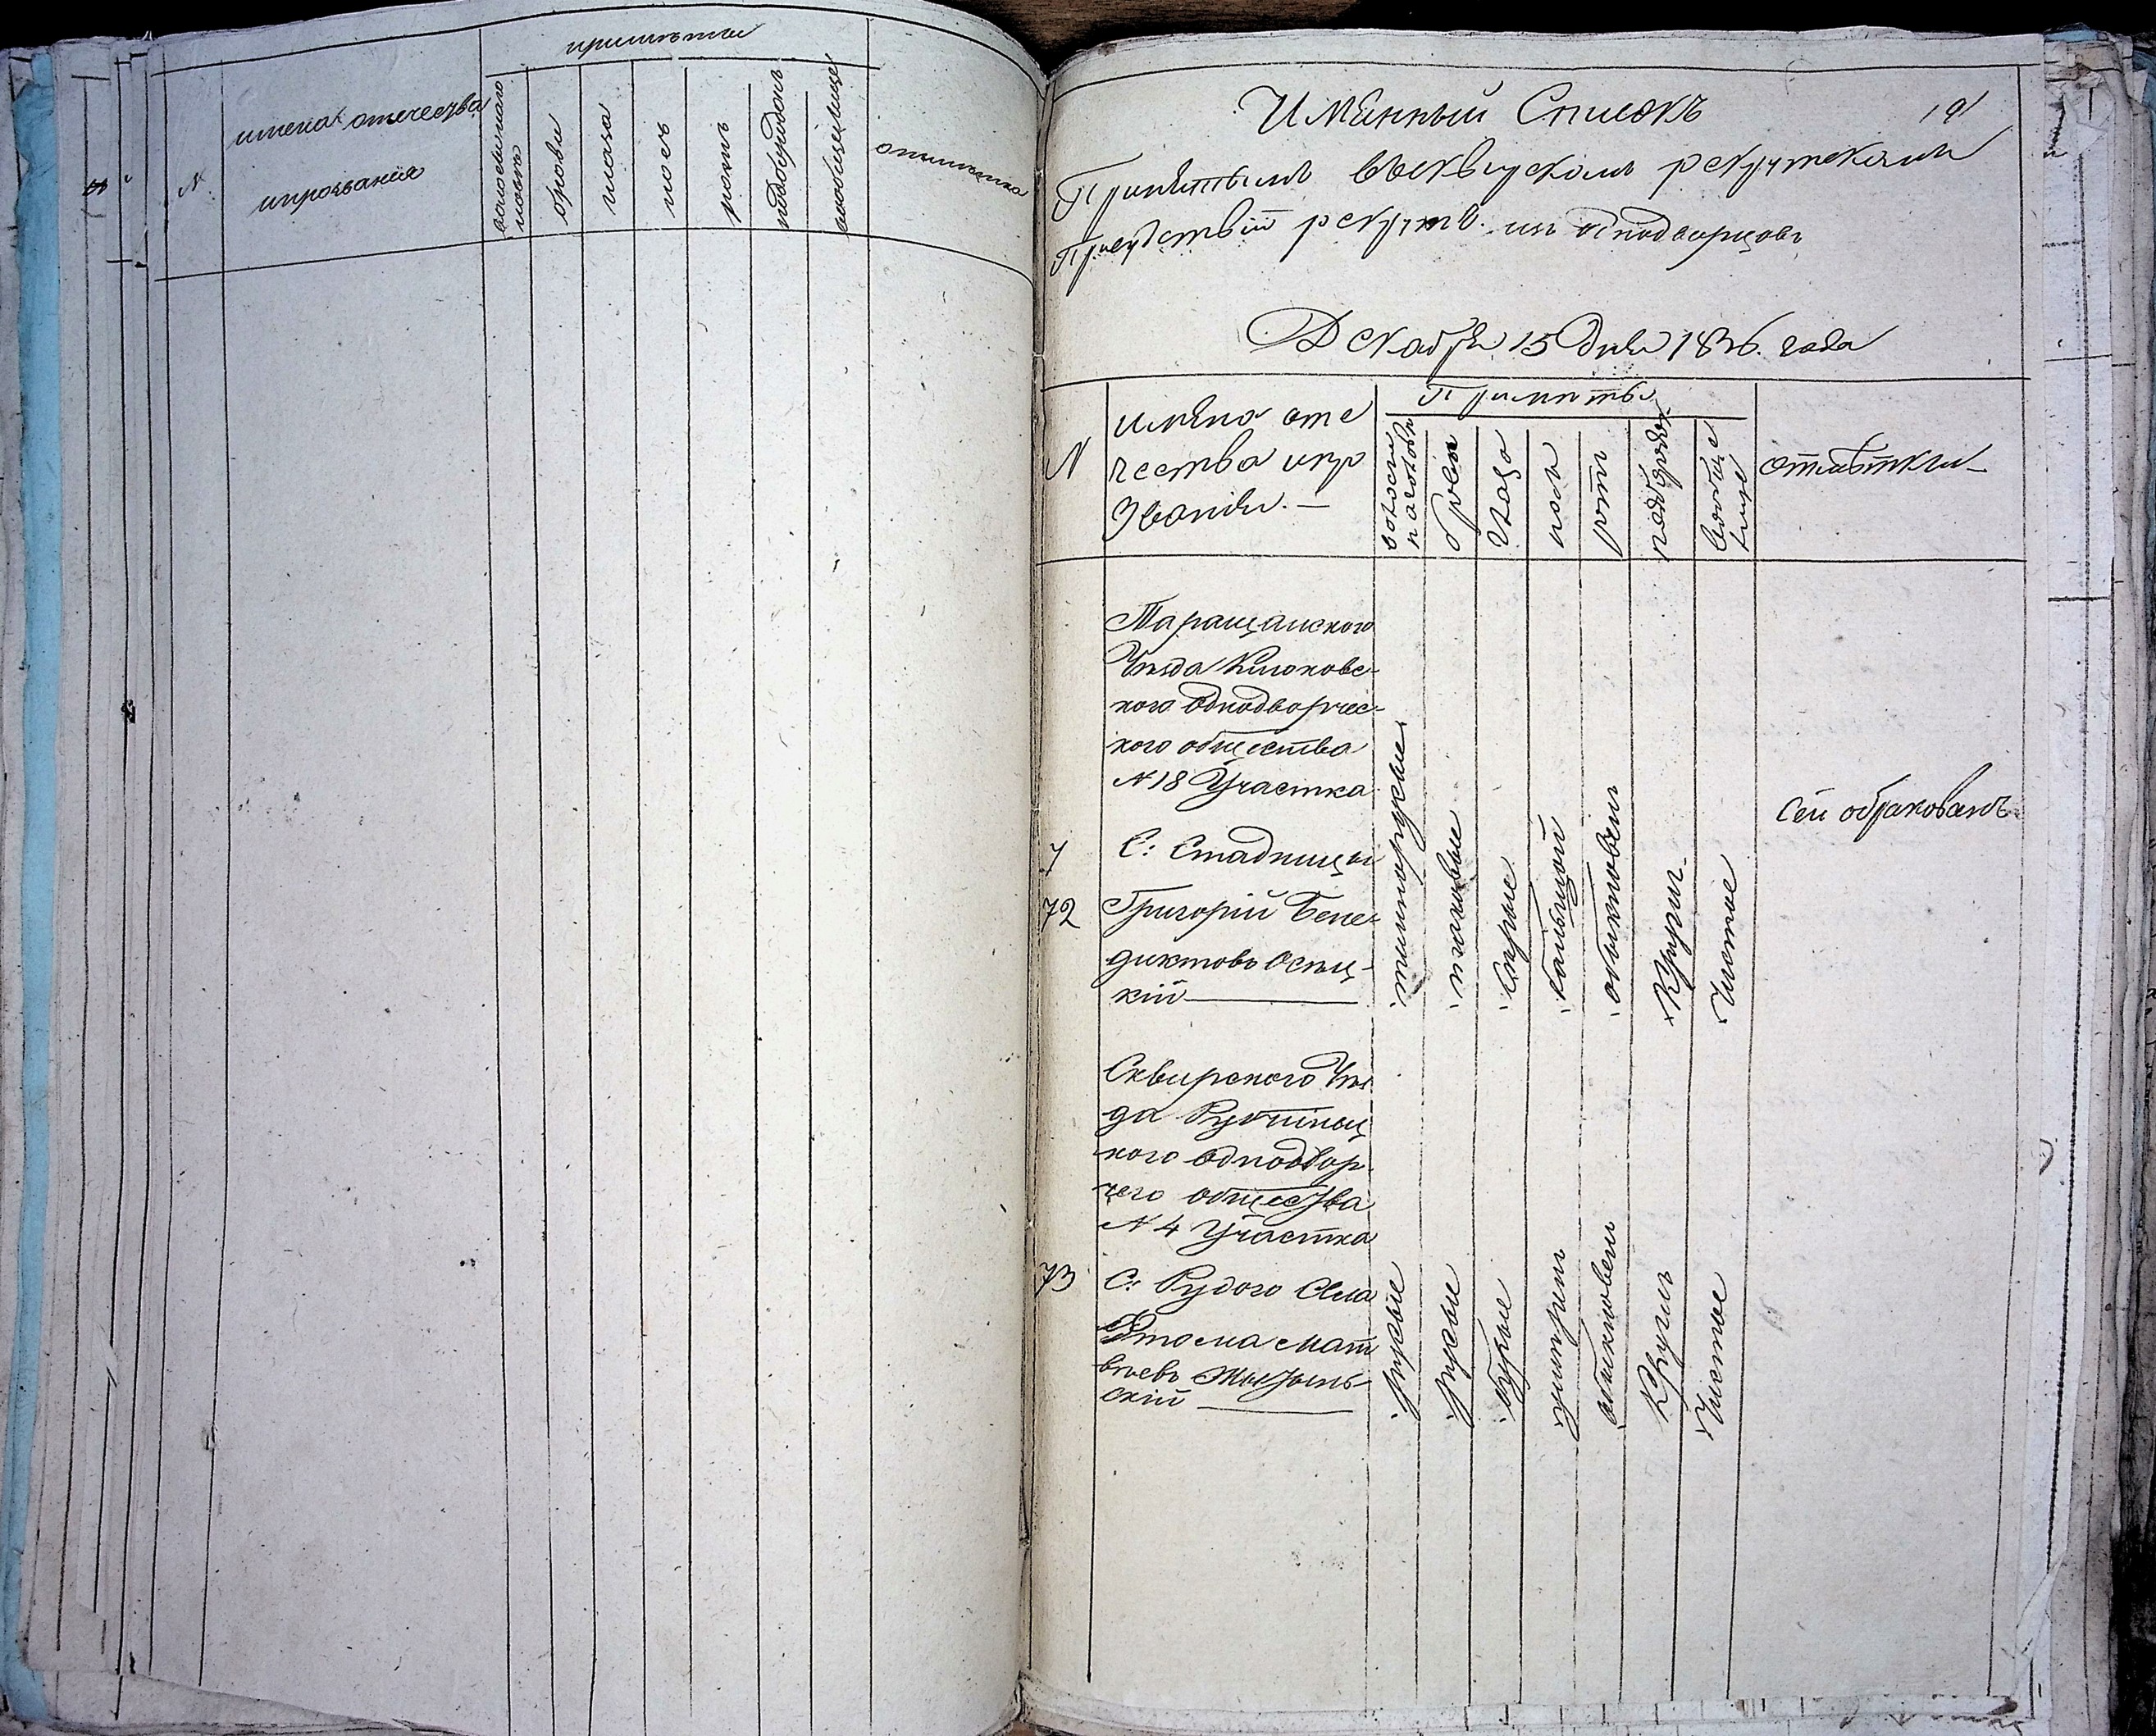 примѣты
№
имена отечества
ипрозвания
волосы
брови
глаза
носъ
ротъ
подбородокъ
лице
отметка
Имянный Списокъ
19
Принятымъ въсквирскомъ рекрутскомъ
Присудствіи рекрутъ изъ однодворцовъ
Декабря 15 дня 1836. года
N
имяна оте
чества ипро
Звания. —
Примѣты
волосы
на голове
брови
Глаза
носъ
ротъ
подбород:
вообще
лице
отмѣтки
Таращанского
Уѣзда Клюковс-
кого Однодворчес-
кого общества
N 18 Участка
7
С: Стадницы
72
Григорій Бене-
диктовъ Осец-
кій
темнорусые
серые
большой
обыкновен
Кругл
Чистое
Сей обракованъ
Сквирского Уѣз
да
кого Однодвор-
чего общества
N 4 Участка
73
С: Рудого Села
Фтома Мат
вѣевъ
скій
русые
русые
бурые
умѣрен
обыкновен
Кругл
Чистое